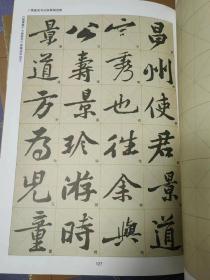 昌州使君景道
宗秀也往余與
公壽景珍游時
景道方為兒童
127